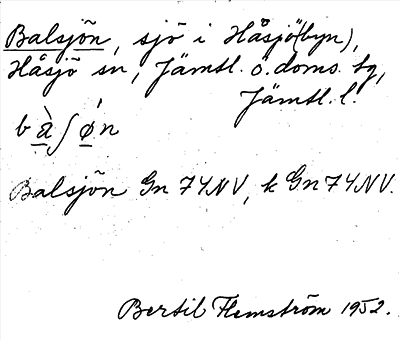 Balsjön, sjö i Håsjö(byn),
Håsjö sn, Jämtl. ö. doms. tg,
Jämtl. l.
b à ʃ ǿ n
Balsjön Gn 74NV, k Gn 74NV.
Bertil Flemström 1952.